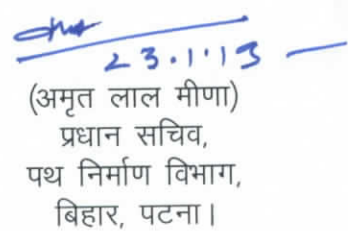 23.1.13
(अमृत लाल मीणा)
प्रधान सचिव,
पथ निर्माण विभाग,
बिहार, पटना।